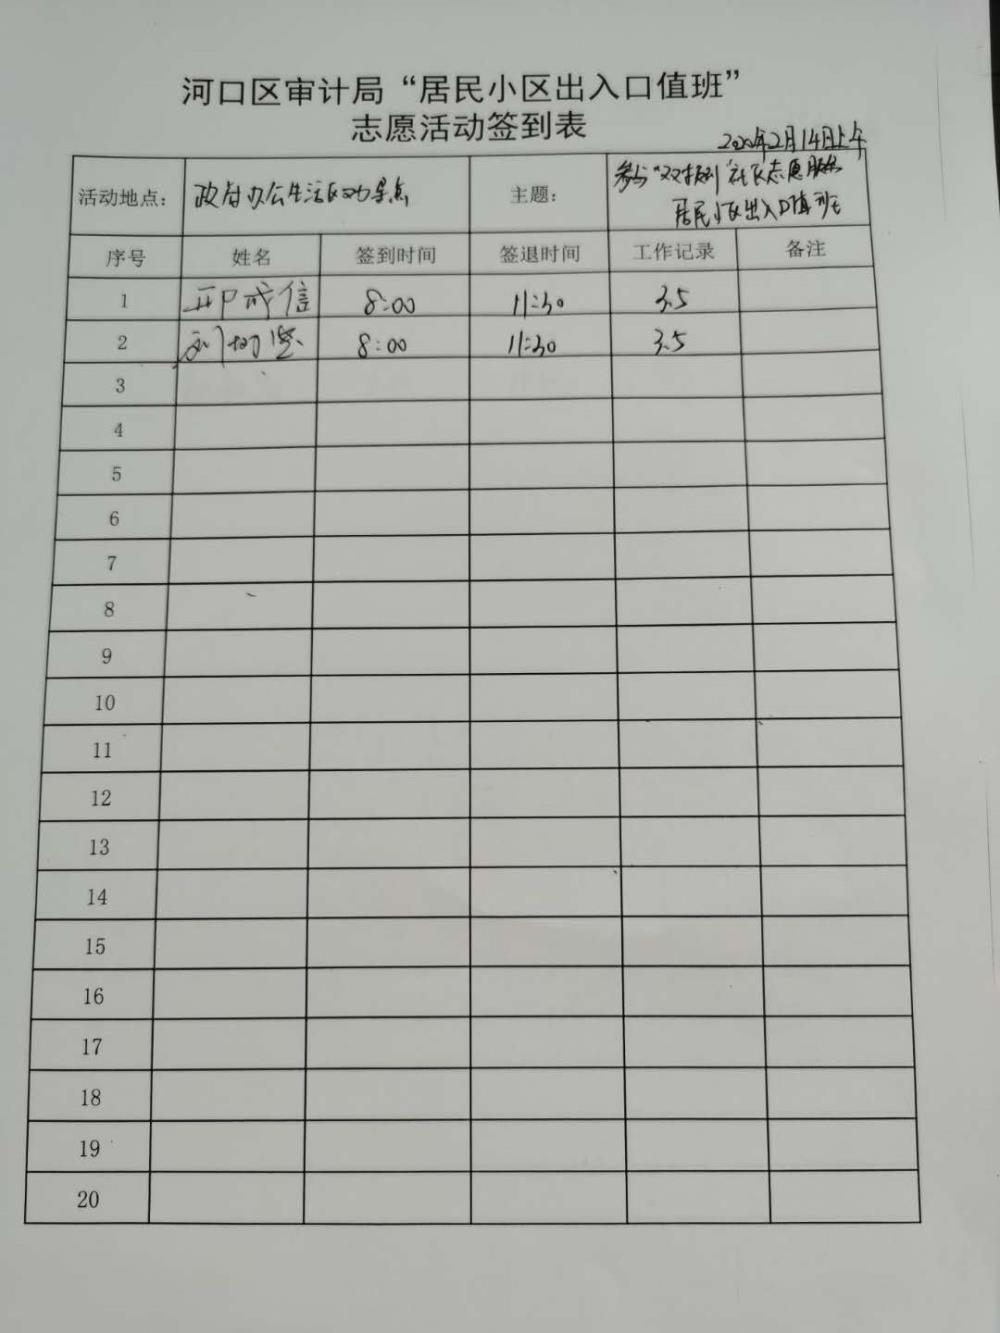 河口区审计局“居民小区出入口值班”
志愿活动签到表
2020年2月14日上午
活动地点： 政府办公生活区 点 主题： 参与“双报到”社区志愿服务
居民小区出入口值班
序号 姓名 签到时间 签退时间 工作记录 备注
1 信 8:00 11:30 3.5
2 刘 8:00 11:30 3.5
3
4
5
6
7
8
9
10
11
12
13
14
15
16
17
18
19
20